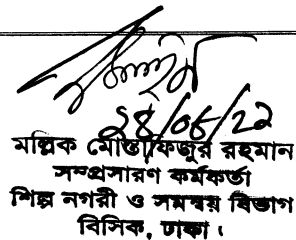 ২৪/০৮/২২
মল্লিক মোস্তাফিজুর রহমান
সম্প্রসারণ কর্মকর্তা
শিল্প নগরী ও সমন্বয় বিভাগ
বিসিক, ঢাকা।